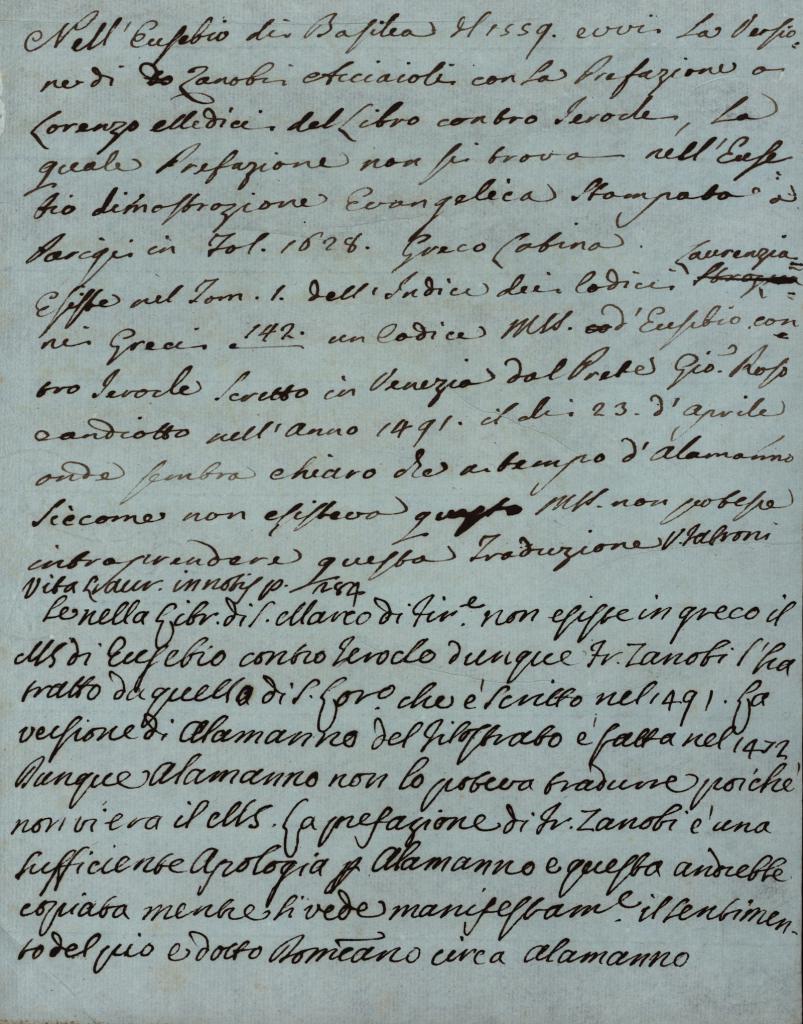 Nell'Eusebio di Basilea del 1559. evvi La Versio=
ne di Zanobi Acciaioli con La Prefazione a
Lorenzo Medici del Libro contro Ierocle, La
quale Prefazione non si trova nell'Euse=
bio dimostrazione Evangelica Stampata a
Parigi in Fol. 1628. Greco Latina.
Esiste nel Tom. 1. dell'Indice dei Codici Laurenzia=
ni Greci 142. un Codice MSS. d'Eusebio con=
tro Ierocle Scritto in Venezia dal Prete Gio: Roso
candiotto nell'Anno 1491. il dì 23. d'Aprile
onde sembra chiaro che a tempo d'Alamanno
Siccome non esisteva questo MSS. non potesse
intraprendere questa Traduzione V. Fabroni
Vita Laur. in notis p. 284
Se nella Libr. di S. Marco di Fir.e non esiste in greco il
MS di Eusebio contro Ieroclo dunque Fr. Zanobi l'ha
tratto da quello di S. Lor.o che è scritto nel 1491. La
versione di Alamanno del Filostrato è fatta nel 1472
Dunque Alamanno non lo poteva tradurre poichè
non vi era il MS. La prefazione di Fr. Zanobi è una
sufficiente Apologia p Alamanno e questa andrebbe
copiata mentre si vede manifestam.e il sentimen-
to del pio e dotto Domēano circa Alamanno